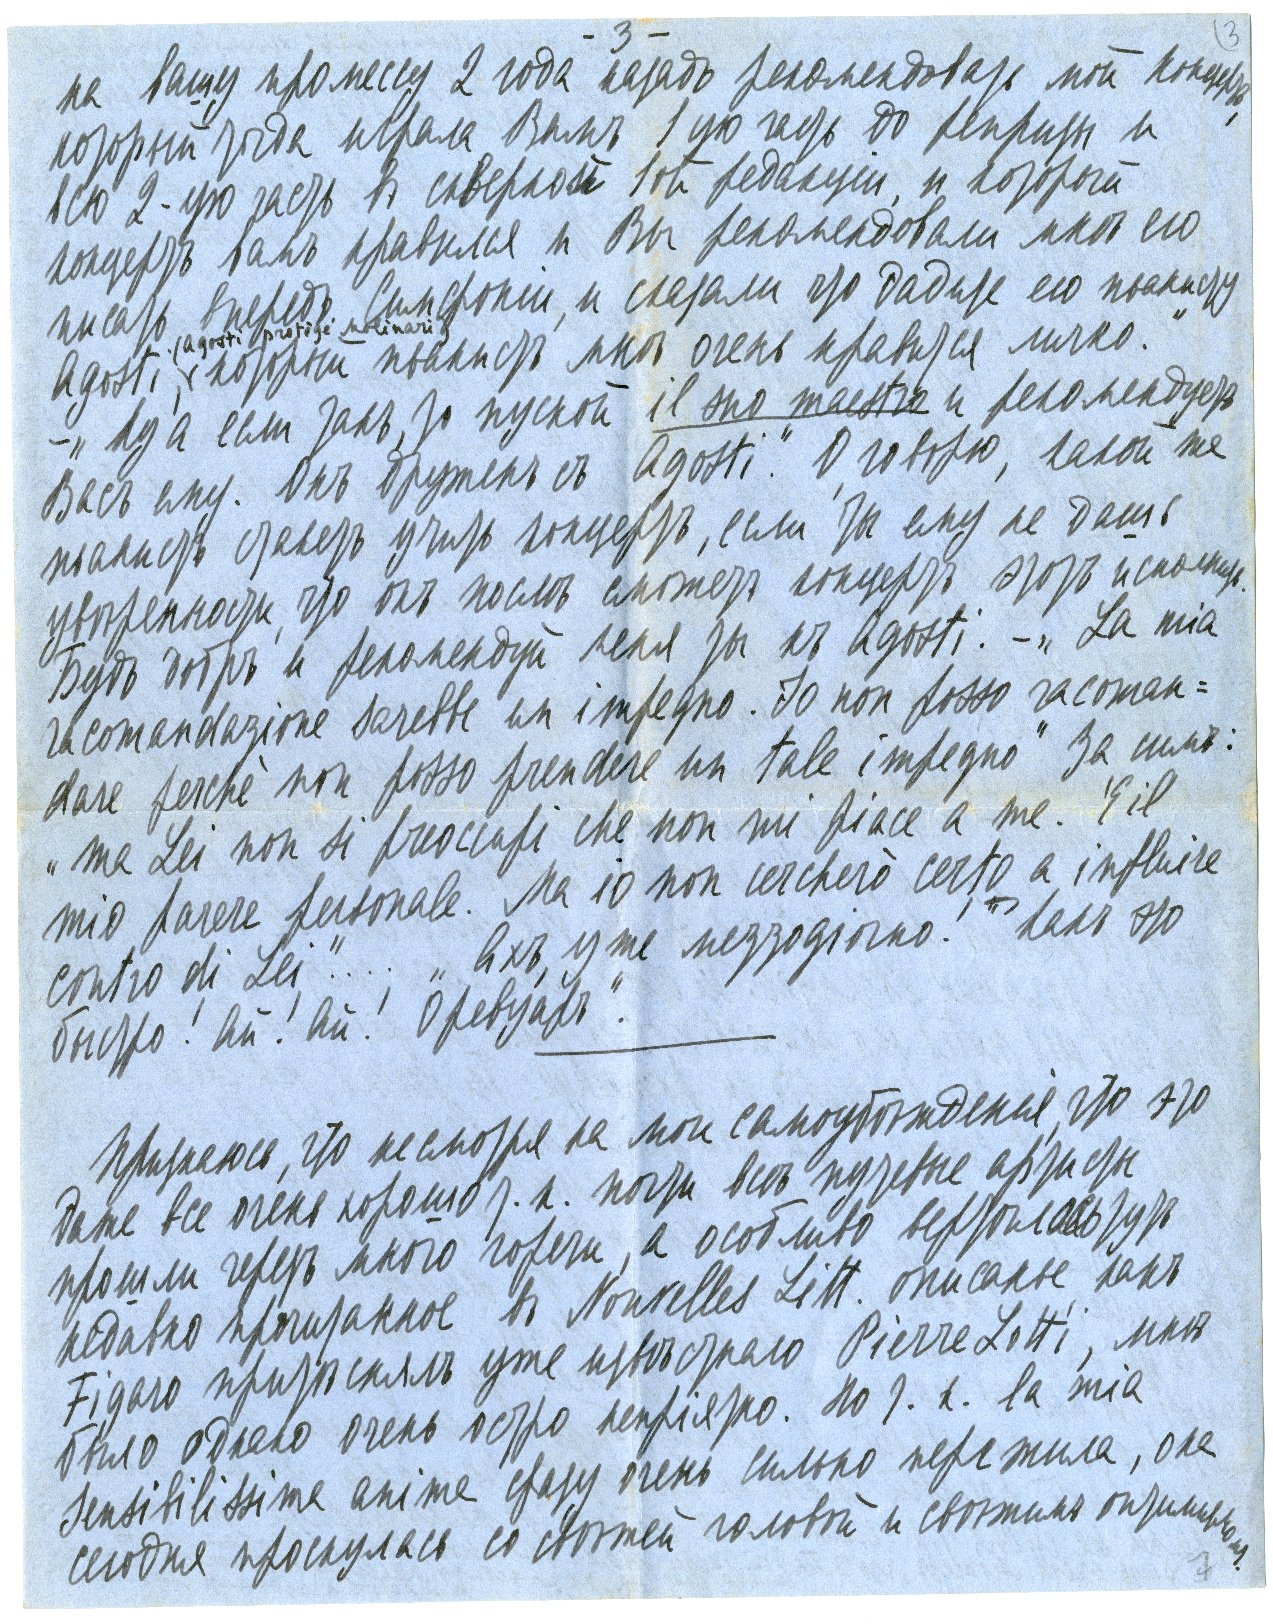 - 3 -
3
на вашу промессу 2 года назадъ рекомендовать мой концертъ,
который тогда играла Вамъ 1ую часть до репризы и
всю 2-ую часть въ скверной 1ой редакціи, и который
концертъ вамъ нравился и Вы рекомендовали мнѣ его
писать впередъ Симфоніи, и сказали что дадите его пьанисту
(Agosti protigé Molinari)
Agosti, который пьанистъ мнѣ очень нравится лично."
-„ Ну а если такъ, то пускай il suo maestro и рекомендуетъ
Васъ ему. Онъ друженъ съ Agosti." О, говорю, какой же
пьанистъ станетъ учить концертъ, если ты ему не дашь
увѣренности, что онъ послѣ сможетъ концертъ этотъ исполнить.
Будь добръ и рекомендуй меня ты къ Agosti. -„ La mia
racomandazione sarebbe un impegno. Io non posso racoman=
dare perchè non posso prendere un tale impegno" За симъ:
„ma Lei non si preoccupi che non mi piace a me. E'il
mio parere personale. Ma io non cercherò certo a influire
contro di Lei"... „ Ахъ, уже mezzogiorno!" Какъ это
быстро! Ай! Ай! Оревуаръ".
Признаюсь, что несмотря на мои самоубѣжденія, что это
даже все очень хорошо т. к. почти всѣ путевые артисты
прошли черезъ много горечи, а особливо
недавно прочитанное въ Nouvelles Litt. описанье, какъ
Figaro притѣснялъ уже извѣстнаго Pierre Lotti, мнѣ
было однако очень остро непріятно. Но т. к. la mia
sensibilissima anima сразу очень сильно пережила, она
сегодня проснулась со свѣжей головой и свѣжимъ оптимизмомъ.
7